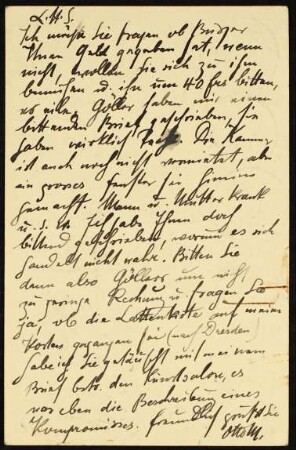 L. H. S.
Ich möchte Sie fragen ob
Ihnen Geld gegeben hat, wenn
nicht, wollen Sie sich zu ihm
bemühen u. ihn um 40 frs bitten,
Göller haben mir einen
bittenden Brief geschrieben, Sie
haben wirklich Pech. Die Kammer
ist auch noch nicht vermietet, aber
ein grosses Fenster für
gemacht. Mann u. Mutter krank
u. s. w. Ich habe Ihnen doch
geschrieben, worum es sich
handelt nicht wahr. Bitten Sie
dann also Göllers um nicht
zu geringe Rechnung u. fragen Sie
ja, ob die Lattenkiste auf meine
Kosten gegangen sei (nach Dresden)
habe ich Sie getäuscht mit meinem
Brief betr. den Kunstsalon, es
war eben die Beschreibung eines
Kompromisses. freundlich grüßt Sie
Otto M.